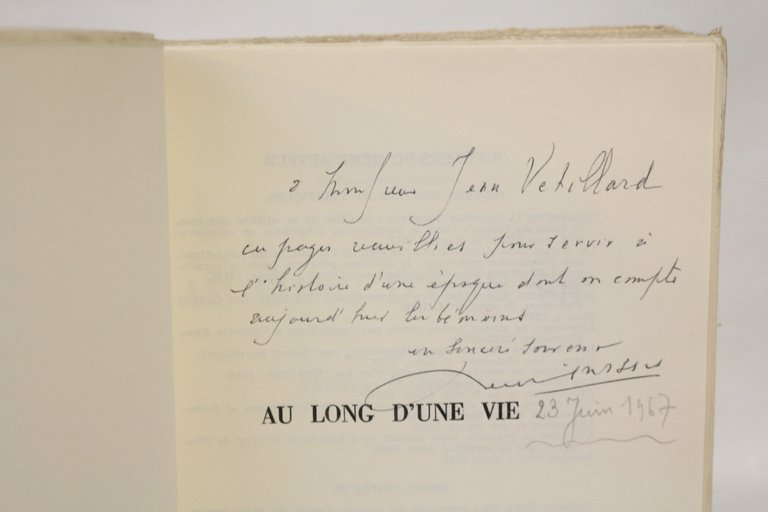 à Monsieur Jean Vetillard
ces pages recueillies pour servir à
l'histoire d'une époque dont on compte
aujourd'hui les témoins
en sincère souvenir
AU LONG D'UNE VIE 23 Juin 1967